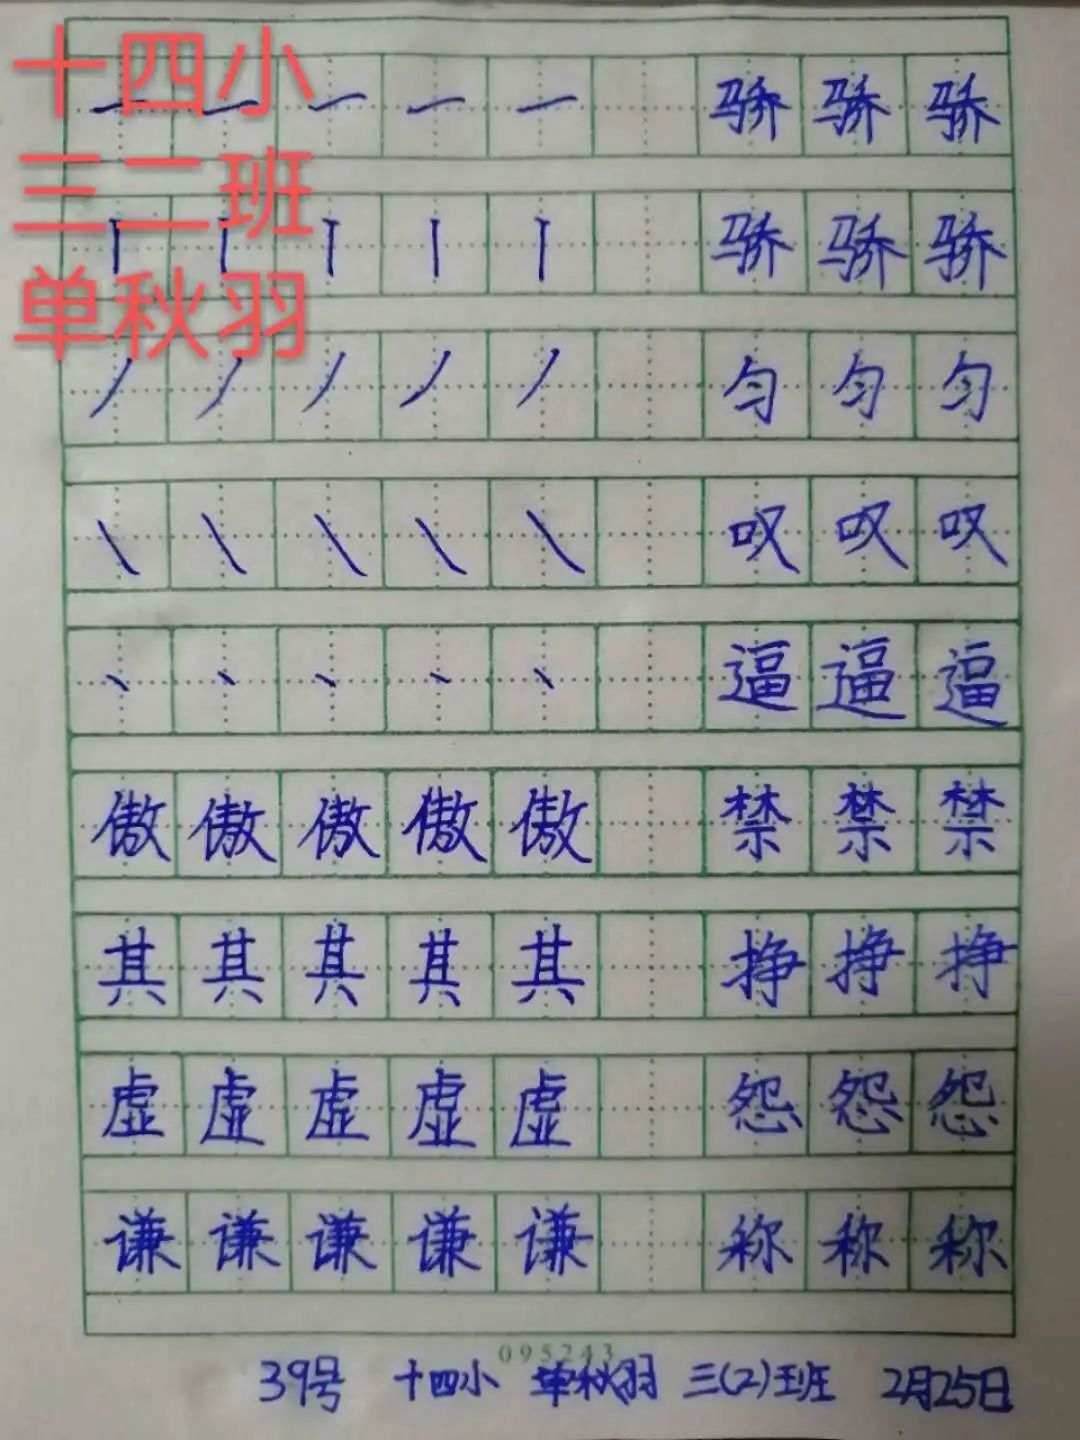 十四小
三二班
单秋羽
一 一 一 一 一 骄 骄 骄
丨 丨 丨 丨 丨 骄 骄 骄
丿 丿 丿 丿 丿 匀 匀 匀
㇏ ㇏ ㇏ ㇏ ㇏ 叹 叹 叹
丶 丶 丶 丶 丶 逼 逼 逼
傲 傲 傲 傲 傲 禁 禁 禁
其 其 其 其 其 挣 挣 挣
虚 虚 虚 虚 虚 怨 怨 怨
谦 谦 谦 谦 谦 称 称 称
095243
39号 十四小 单秋羽 三(2)班 2月25日